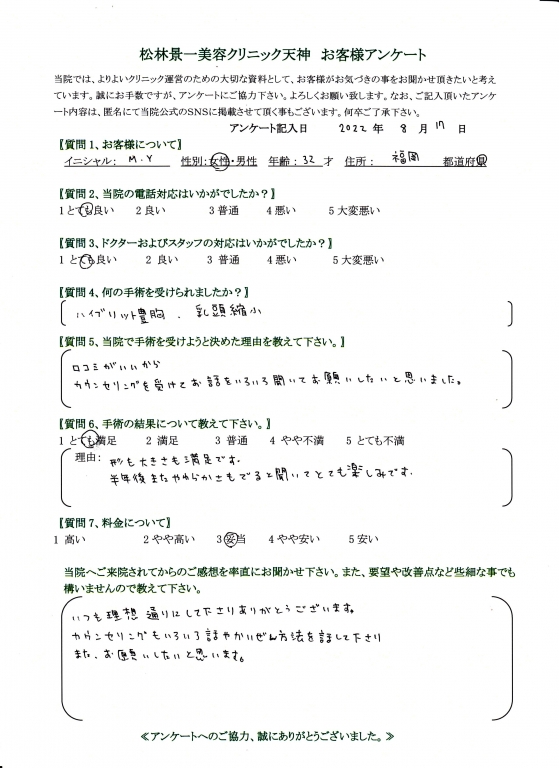 松林景一美容クリニック天神　お客様アンケート
当院では、よりよいクリニック運営のための大切な資料として、お客様がお気づきの事をお聞かせ頂きたいと考え
ています。誠にお手数ですが、アンケートにご協力下さい。よろしくお願い致します。なお、ご記入頂いたアンケ
ート内容は、匿名にて当院公式のSNSに掲載させて頂く事もございます。何卒ご了承下さい。
アンケート記入日　2022 年　8　月 17　日
【質問1、お客様について】
イニシャル：　M.Y　性別:女性・男性　年齢：32 才　住所：　福岡　都道府県
【質問2、当院の電話対応はいかがでしたか？】
1 とても良い　2 良い　3 普通　4 悪い　5 大変悪い
【質問3、ドクターおよびスタッフの対応はいかがでしたか？】
1 とても良い　2 良い　3 普通　4 悪い　5 大変悪い
【質問4、何の手術を受けられましたか？】
ハイブリット豊胸　、　乳頭縮小
【質問5、当院で手術を受けようと決めた理由を教えて下さい。】
口コミがいいから
カウンセリングを受けてお話をいろいろ聞いてお願いしたいと思いました。
【質問6、手術の結果について教えて下さい。】
1 とても満足　2 満足　3 普通　4 やや不満　5 とても不満
理由：　形も大きさも満足です。
半年後またやわらかさもでると聞いてとても楽しみです.
【質問7、料金について】
1 高い　2 やや高い　3 妥当　4 やや安い　5 安い
当院へご来院されてからのご感想を率直にお聞かせ下さい。また、要望や改善点など些細な事でも
構いませんので教えて下さい。
いつも理想通りにして下さりありがとうございます。
カウンセリングもいろいろ話やかいぜん方法を話して下さり
また、お願いしたいと思います。
≪アンケートへのご協力、誠にありがとうございました。≫